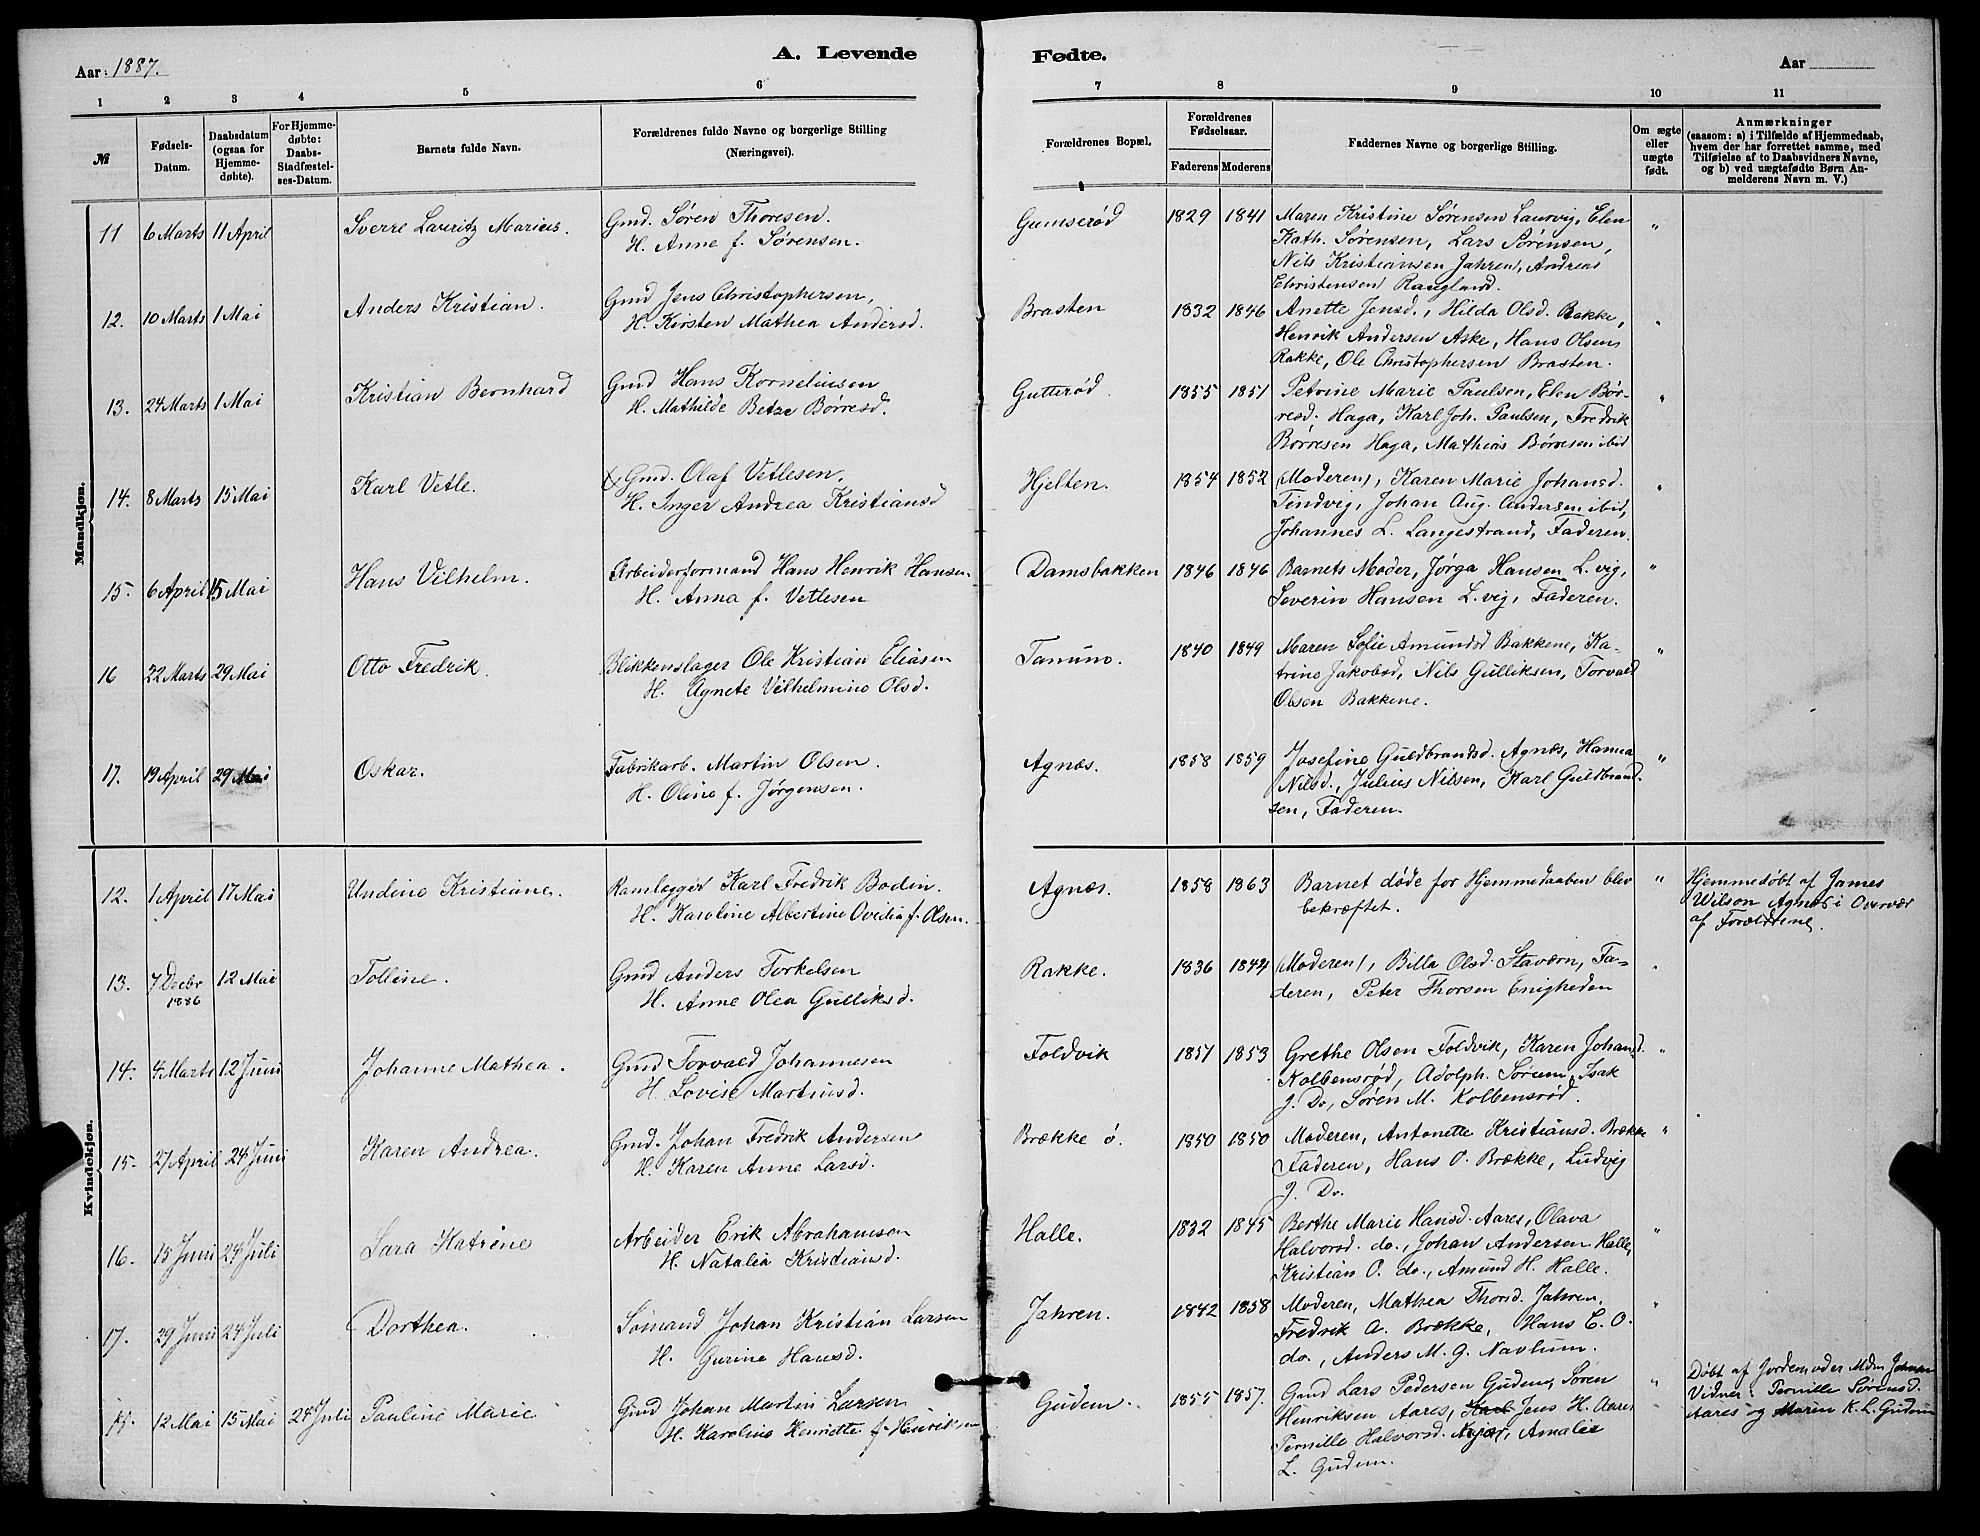 Aar: 1887.
A. Levende Fødte.
Aar
1 2 3 4 5 6 7 8 9 10 11
№
Fødsels-Datum.
Daabsdatum (ogsaa for Hjemme-døbte).
For Hjemme-døbte: Daabs-Stadfæstel-ses-Datum.
Barnets fulde Navn.
Forældrenes fulde Navne og borgerlige Stilling (Næringsvei).
Forældrenes Bopæl.
Forældrenes Fødselsaar.
Faderens Moderens
Faddernes Navne og borgerlige Stilling.
Om ægte eller uægte født.
Anmærkninger
(saasom: a) i Tilfælde af Hjemmedaab,
hvem der har forrettet samme, med
Tilføielse af to Daabsvidners Navne,
og b) ved uægtefødte Børn An-
melderens Navn m. V.)
Mandkjøn.
11 6 Marts 11 April Sverre Lauritz Marius. Gmd. Søren Thoresen. Gumserød 1829 1841 Maren Kristine Sørensen Laurvig, Elen "
H. Anne f. Sørensen. Kath. Sørensen, Lars Sørensen,
Nils Kristiansen Jahren, Andreas
Christensen Raugland.
12. 10 Marts 1 Mai Anders Kristian. Gmd Jens Christophersen, Brasten 1832 1846 Anette Jensd., Hilda Olsd. Rakke, "
H. Kirsten Mathea Andersd. Henrik Andersen Aske, Hans Olsen
Rakke, Ole Christophersen Brasten.
13. 24 Marts 1 Mai Kristian Bernhard Gmd Hans Korneliusen Gutterød. 1855 1851 Petrine Marie Paulsen, Elen Bør- "
H. Mathilde Betze Børresd. resd. Haga, Karl Joh. Paulsen, Fredrik
Børresen Haga, Mathias Børresen ibid
14. 8 Marts 15 Mai Karl Vetle. Gmd. Olaf Vetlesen, Hjelten. 1854 1852 (Moderen), Karen Marie Johansd. "
H. Inger Andrea Kristiansd Tindvig, Johan Aug. Andersen ibid,
Johannes L. Langestrand, Faderen.
15. 6 April 15 Mai Hans Vilhelm. Arbeiderformand Hans Henrik Hansen. Damsbakken 1846 1846 Barnets Moder, Jørga Hansen L.vig, "
H. Anna f. Vetlesen Severin Hansen L.vig, Faderen.
16 22 Marts 29 Mai Otto Fredrik. Blikkenslager Ole Kristian Eliasen Tanum. 1840 1849 Maren Sofie Amundsd Bakkene, Ka- "
H. Agnete Vilhelmine Olsd. trine Jakobsd, Nils Gulliksen, Torvald
Olsen Bakkene.
17. 19 April 29 Mai Oskar. Fabrikarb. Martin Olsen. Agnæs. 1858 1859 Josefine Guldbrandsd. Agnæs, Hanna "
H. Oline f. Jørgensen. Nilsd., Julius Nilsen, Karl Guldbrand-
sen, Faderen.
Kvindekjøn.
12. 1 April 17 Mai Undine Kristiane. Ramlegger Karl Fredrik Bodin. Agnæs. 1858 1863 Barnet døde før Hjemmedaaben blev " Hjemmedøbt af James
H. Karoline Albertine Ovidia f. Olsen. bekræftet. Wilson Agnæs i Overvær
af Forældrene.
13. 7 Decbr 1886 12 Mai Tolline. Gmd Anders Torkelsen Rakke. 1836 1842 (Moderen), Billa Olsd. Staværn, Fa- "
H. Anne Olea Gulliksd. deren, Peter Thorsen Enigheden
14. 4 Marts 12 Juni Johanne Mathea. Gmd Torvald Johannesen Foldvik 1851 1853 Grethe Olsen Foldvik, Karen Johansd. "
H. Lovise Martinsd. Kolbensrød, Adolph. Sørum, Isak
J. Do, Søren M. Kolbensrød.
15. 27 April 24 Juni Karen Andrea. Gmd. Johan Fredrik Andersen Brække ø. 1850 1850 Moderen, Antonette Kristiansd. Brække "
H. Karen Anne Larsd. Faderen, Hans O. Brække, Ludvig
J. Do.
16. 15 Juni 24 Juli Sara Katrine Arbeider Erik Abrahamsen Halle. 1832 1845 Berthe Marie Hansd. Aares, Olava "
H. Natalia Kristiansd. Halvorsd. do., Johan Andersen Halle,
Kristian O. do., Amund H. Halle.
17. 29 Juni 24 Juli Dorthea. Sømand Johan Kristian Larsen Jahren. 1842 1858 Moderen, Mathea Thorsd. Jahren, "
H. Gurine Hansd. Fredrik A. Brække, Hans C. O.
do., Anders M. G. Navlum.
12 Mai 15 Mai 24 Juli Pauline Marie Gmd Johan Martin Larsen Gudem. 1855 1857. Gmd Lars Pedersen Gudem, Søren " Døbt af Jordemoder Mdm Johnsen
H. Karoline Henriette f. Henriksen Henriksen Aares, Jens H. Aares, Vidner: Pernille Sørensd.
Pernille Halvorsd. Amalie Aares og Maren K. L. Gudem
L. Gudem.